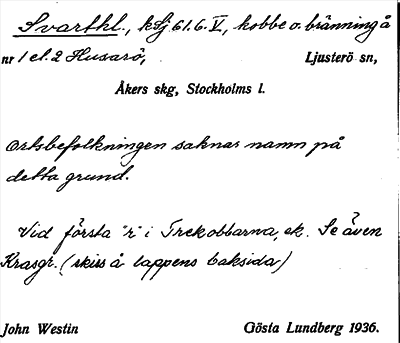 Svartkl., kSj 61.6.V, kobbe o. bränning å
nr 1 el. 2 Husarö, Ljusterö sn,
Åkers skg, Stockholms l.
Ortsbefolkningen saknar namn på
detta grund.
Vid första "r" i Trekobbarna, ek. Se även
Krasgr. (skiss å lappens baksida)
John Westin Gösta Lundberg 1936.